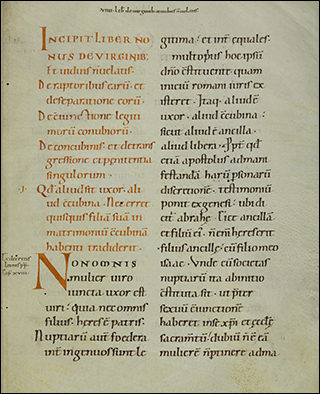 INCIPIT LIBER NO
NUS DE VIRGINIB;
Et viduis n̄ velatis.
De raptoribus earū. et
de separatione eorū.
De c̄iunctione legiti
morū conubiorū.
De concubinis. et de trans
gressione et penitentia
singulorum.
.I. Qđ aliud sit uxor. ali
ud c̄cubina. Nec erret
quisquis filiā suā in
matrimoniū c̄cubinā
habenti tradiderit.
Ex decretis
Leonis pp̄.
NON OMNIS
mulier uiro
iuncta uxor est
uiri: quia nec omnis
filius. heres ē patris.
Nuptiarū aut̄ foedera
int̄ ingenuos sunt le
gitima: et int̄ equales.
multo prius hoc ipsū
dn̄o c̄stituente. quam
iniciū romani iuris ex
isteret. Itaq; aliud ē
uxor. aliud c̄cubina:
sicut aliud ē ancilla.
aliud libera. Ppt̄ qđ
etiā apostolus ad mani
festandā harū psonarū
discretionē. testimoniū
ponit ex genesi: ubi dic̄
abrahę. Eice ancillā
et filiū ei; n̄ enī heres erit
filius ancillę: cū filio meo
isaac. Unde cū societas
nuptiarū ita ab initio
c̄stituta sit. ut ppter
sexuū c̄iunctionē
haberet in se xp̄i et ęcclę
sacramtū: dubiū n̄ ē eā
mulierē n̄ ptinere ad ma